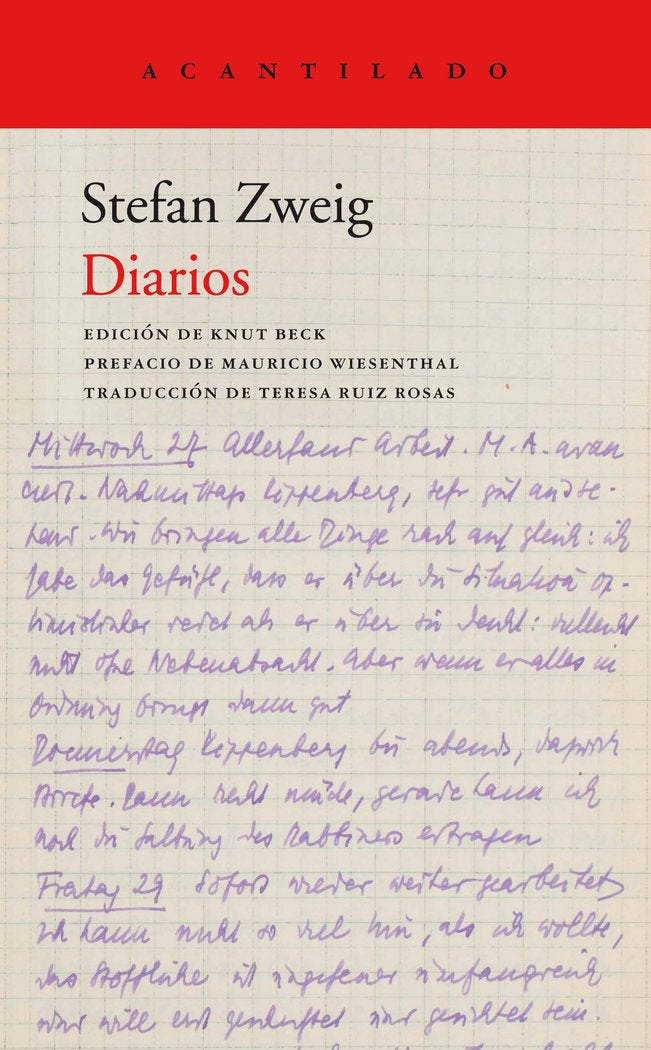 ACANTILADO
Stefan Zweig
Diarios
EDICIÓN DE KNUT BECK
PREFACIO DE MAURICIO WIESENTHAL
TRADUCCIÓN DE TERESA RUIZ ROSAS
Mittwoch 27 Allerhand Arbeit. M. A. avan
ciert. Nachmittags Kippenberg, sehr gut
Wir bringen alle Dinge rasch auf gleich: ich
habe das Gefühl, dass er über die Situation op-
timistischer redet als er über sie denkt: vielleicht
nicht ohne Nebenabsicht. Aber wenn er alles in
Ordnung bringt dann gut
Donnerstag Kippenberg bis abends, dazwisch
Briefe. Dann recht müde, gerade kann ich
noch die Salbung des Rabbiners ertragen
Freitag 29 Sofort wieder weiter gearbeitet
Ich kann nicht so viel thun, als ich wollte,
das Stoffliche ist ungeheuer umfangreich
und will erst gesichtet sein.